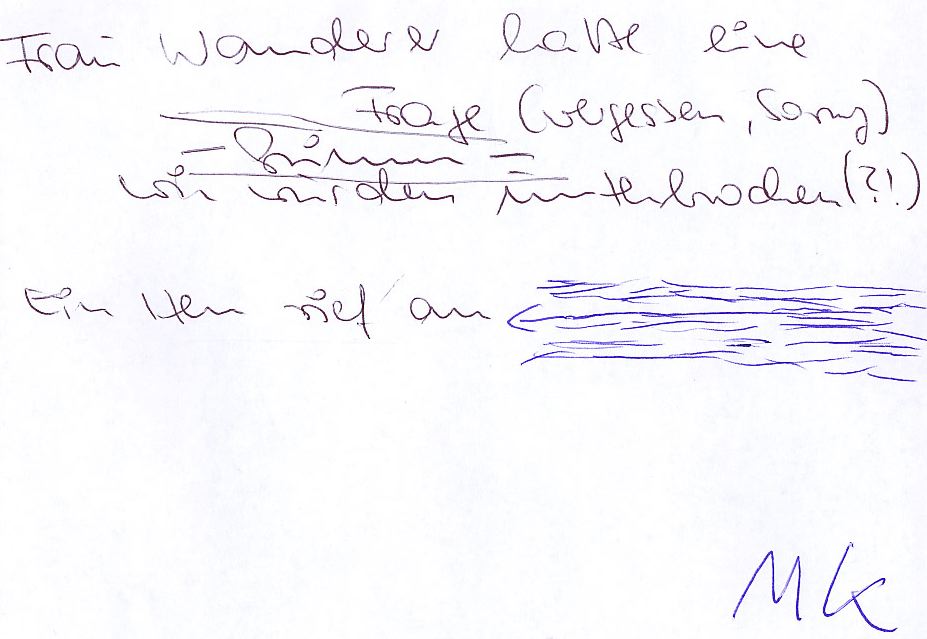 Frau Wanderer hatte eine
Frage (vergessen, sorry)
wir wurden unterbrochen (?!)
Ein Herr rief an
MK